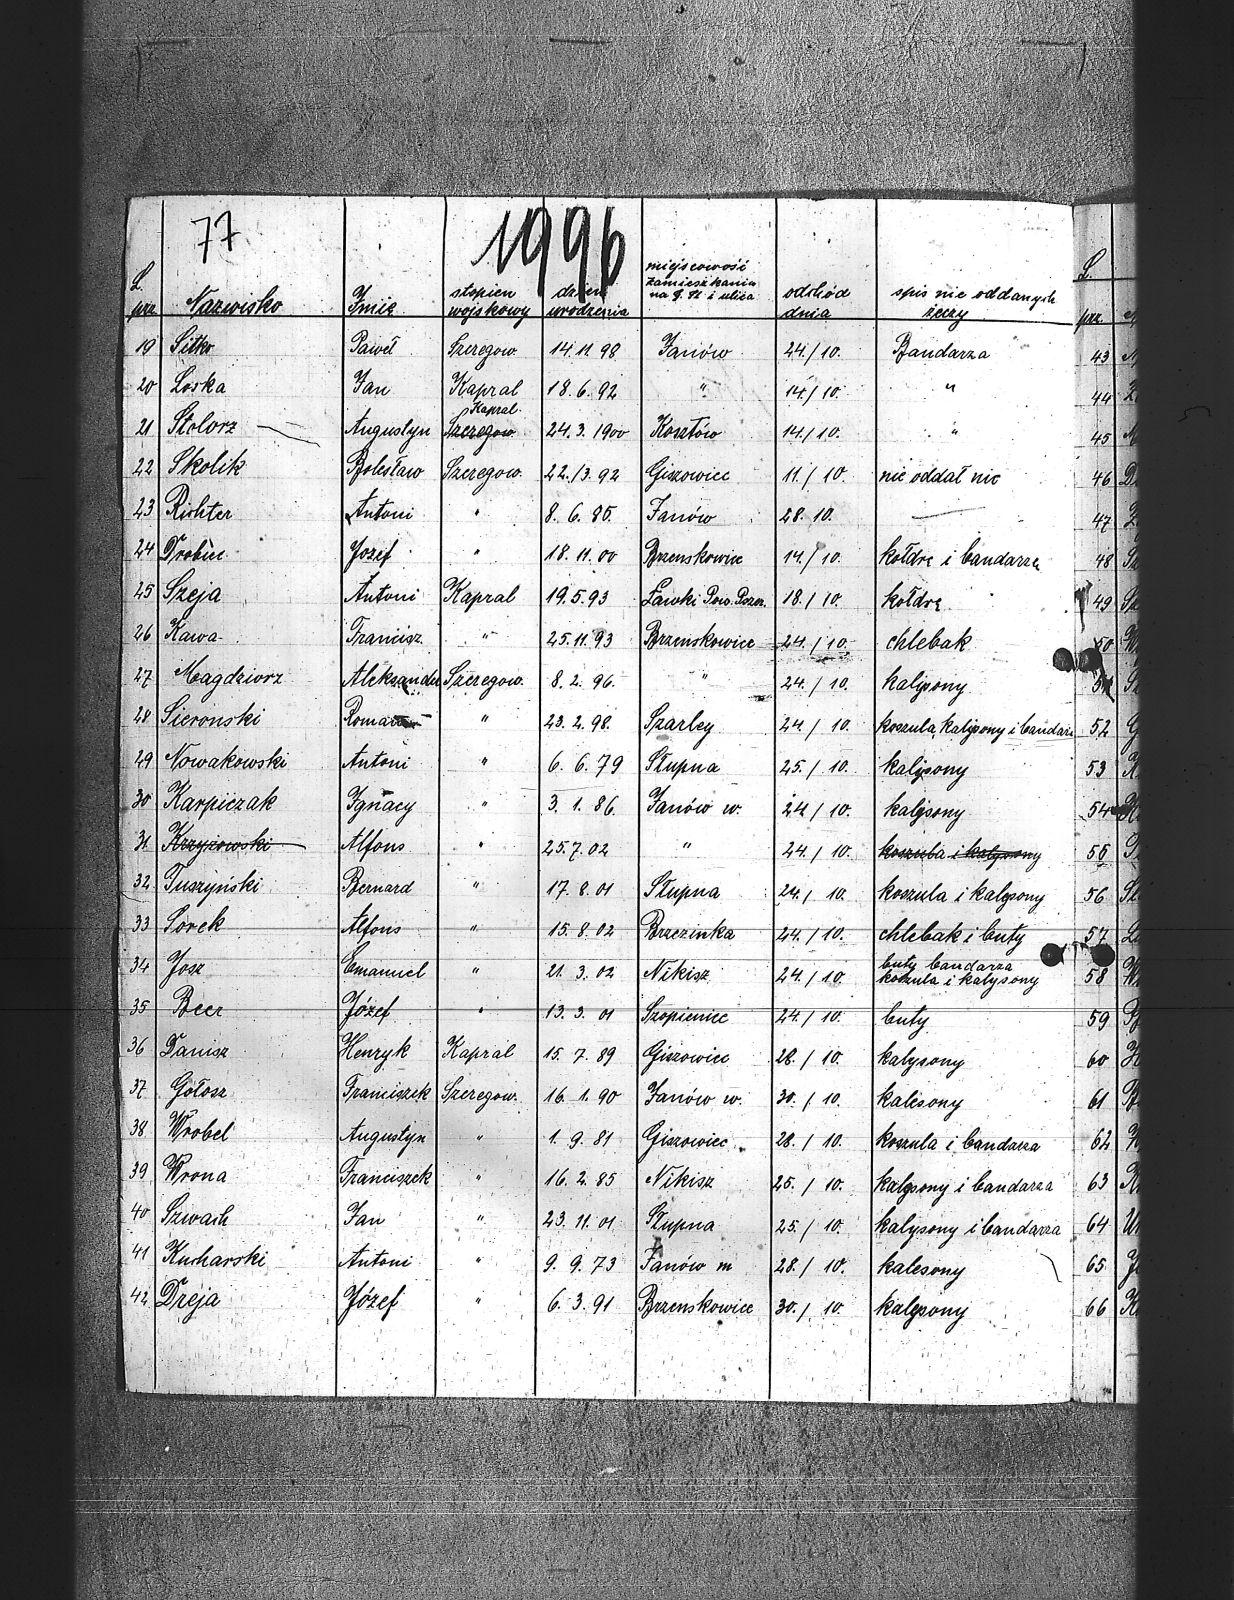 77 1996
L. prz. Nazwisko Imię stopien wojskowy dzień urodzenia miejscowość zamieszkania na G. Śl. i ulica odchód dnia spis nie oddanych rzeczy
19 Sitko Paweł Szeregow. 14.11.98 Janów 24./10. Bandarza
20 Loska Jan Kapral 18.6.92 " 14/10. "
21 Stolorz Augustyn Kapral Szeregow. 24.3.1900 Kosztów 14/10. "
22 Skolik Bolesław Szeregow. 22./3.92 Giszowiec 11./10. nie oddał nic
23 Richter Antoni " 8.6.85. Janów 28.10. —
24 Drobiec Jozef " 18.11.00 Brzenskowice 14./10. kołdrę i bandarzę
25 Szeja Antoni Kapral 19.5.93 Ławki Pow. Pszcz. 18./10. kołdrę
26 Kawa Francisz. " 25.11.93 Brzenskowice 24./10. chlebak
27 Magdziorz Aleksander Szeregow. 8.2.96. " 24./10. kalysony
28 Sieronski Roman " 23.2.98. Szarley 24./10. koszula, kalysony i bandarz
29 Nowakowski Antoni " 6.6.79 Słupna 25./10. kalysony
30 Karpiczak Ignacy " 3.1.86. Janów w. 24/10. kalysony
31 Krzyżowski Alfons " 25.7.02 " 24./10. koszula i kalysony
32 Tuszyński Bernard " 17.8.01 Słupna 24./10. koszula i kalysony
33 Sorek Alfons " 15.8.02 Brzezinka 24./10. chlebak i buty
34 Josz Emanuel " 21.3.02 Nikisz 24./10. buty bandarza
koszula i kalysony
35 Beer Józef " 13.3.01 Szopieniec 24./10. buty
36 Danisz Henryk Kapral 15.7.89 Giszowiec 28./10. kalysony
37 Gołosz Franciszek Szeregow. 16.1.90 Janów w. 30./10. kalesony
38 Wrobel Augustyn " 1.9.81 Giszowiec 28./10. koszula i bandarza
39 Wrona Franciszek " 16.2.85 Nikisz 25./10. kalysony i bandarza
40 Szwach Jan " 23.11.01 Słupna 25./10. kalysony i bandarza
41 Kucharski Antoni " 9.9.73 Janów m 28./10. kalesony
42 Dreja Józef " 6.3.91 Brzenskowice 30./10. kalysony
L. prz.
43
44
45
46
47
48
49
50
52
53
54
55
56
57
58
59
60
61
62
63
64
65
66